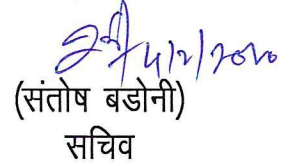 4/2/2020
(संतोष बडोनी)
सचिव